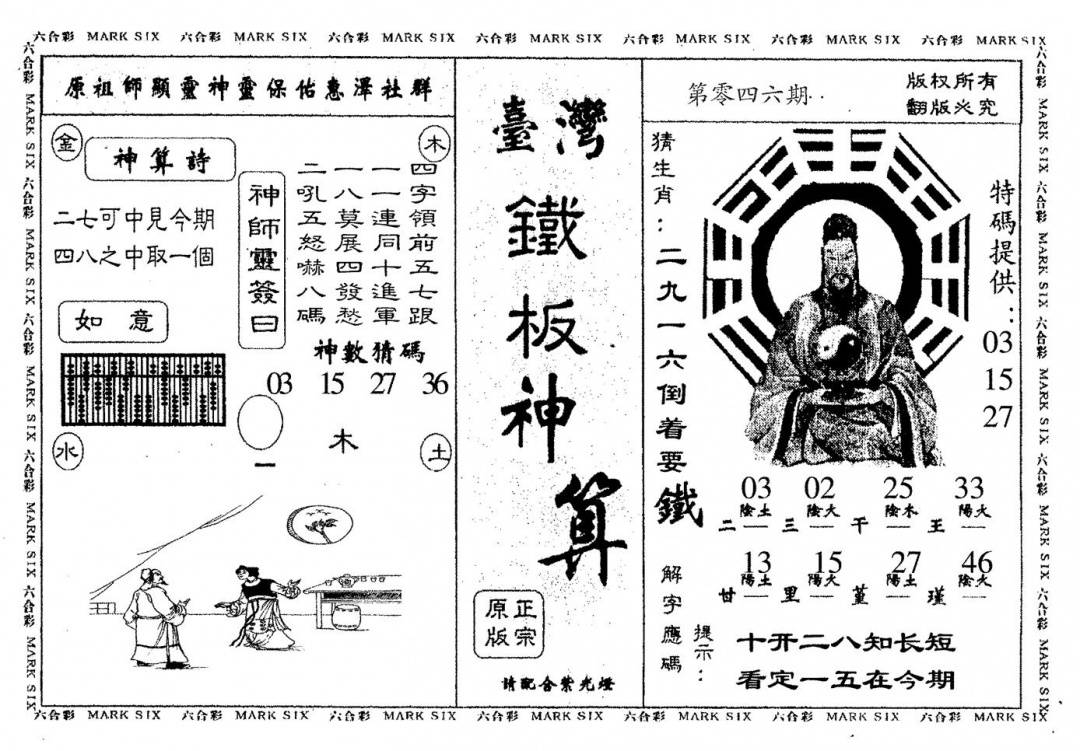 六合彩 MARK SIX 六合彩 MARK SIX 六合彩 MARK SIX 六合彩 MARK SIX 六合彩 MARK SIX 六合彩 MARK SIX 六合彩 MARK SIX
原祖師顯靈神靈保佑惠澤社群
金
木
神算詩
二七可中見今期
四八之中取一個
神師靈簽曰
四字領前五七跟
一一連同十進軍
一八莫展四發愁
二吼五怒嚇八碼
如意
神數猜碼
03 15 27 36
木
水
土
一
臺灣
鐵板神算
正宗
原版
請配合紫光燈
第零四六期
版权所有
翻版必究
猜生肖：二九一六倒着要鐵
特碼提供：
03
15
27
03 02 25 33
陰土 陰火 陰木 陽火
二 三 干 王
13 15 27 46
陽土 陽火 陽土 陰火
甘 里 堇 瑾
解字應碼
提示：
十开二八知长短
看定一五在今期
六合彩 MARK SIX 六合彩 MARK SIX 六合彩 MARK SIX 六合彩 MARK SIX 六合彩 MARK SIX 六合彩 MARK SIX 六合彩 MARK SIX
六合彩 MARK SIX 六合彩 MARK SIX 六合彩 MARK SIX 六合彩 MARK SIX 六合彩 MARK SIX
六合彩 MARK SIX 六合彩 MARK SIX 六合彩 MARK SIX 六合彩 MARK SIX 六合彩 MARK SIX